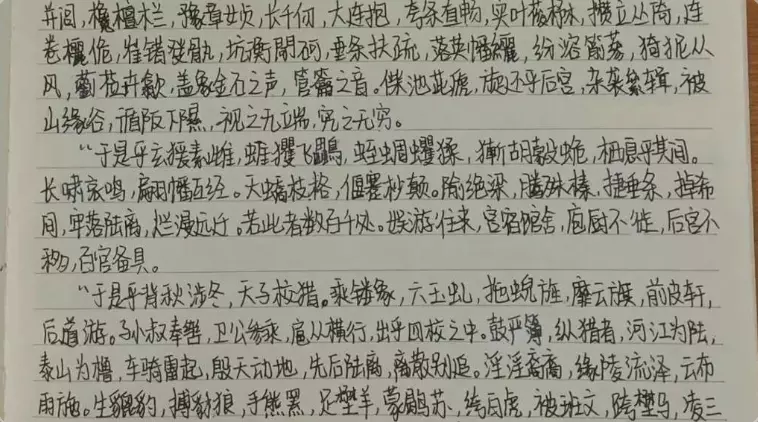 并闾，欃檀木栏，豫章女贞，长千仞，大连抱，夸条直畅，实叶葰楙，攒立丛倚，连
卷欐佹，崔错癹骫，坑衡閜砢，垂条扶疏，落英幡纚，纷溶箾蔘，猗狔从
风，藰莅卉歙，盖象金石之声，管籥之音。偨池茈虒，旋还乎后宫，杂袭絫辑，被
山缘谷，循阪下隰，视之无端，究之无穷。
“于是乎玄猨素雌，蜼玃飞鸓，蛭蜩蠼猱，獑胡豰蛫，栖息乎其间。
长啸哀鸣，翩幡互经。夭蟜枝格，偃蹇杪颠。隃绝梁，腾殊榛，捷垂条，掉希
间，牢落陆离，烂漫远迁。若此者数百千处。娱游往来，宫宿馆舍，庖厨不徙，后宫不
移，百官备具。
“于是乎背秋涉冬，天子校猎。乘镂象，六玉虬，拖蜺旌，靡云旗，前皮轩，
后道游。孙叔奉辔，卫公参乘，扈从横行，出乎四校之中。鼓严簿，纵猎者，河江为阹，
泰山为橹，车骑雷起，殷天动地，先后陆离，离散别追。淫淫裔裔，缘陵流泽，云布
雨施。生貔豹，搏豺狼，手熊罴，足壄羊，蒙鹖苏，绔白虎，被班文，跨壄马，凌三